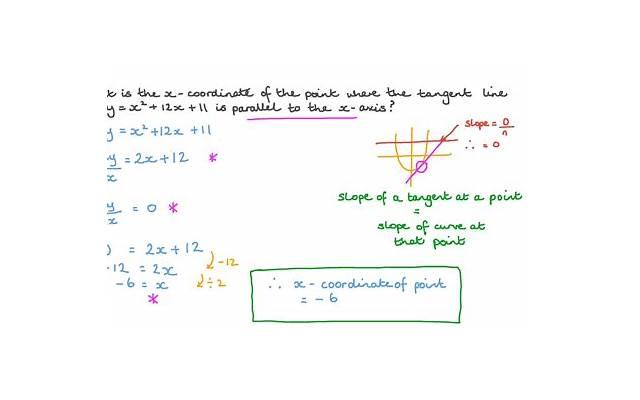 t is the x-coordinate of the point where the tangent line
y = x² + 12x + 11 is parallel to the x-axis?
y = x² + 12x + 11
y/x = 2x + 12 *
y/x = 0 *
) = 2x + 12
-12 = 2x
-6 = x
*
-12
÷2
slope = 0/n
∴ = 0
slope of a tangent at a point
=
slope of curve at
that point
∴ x-coordinate of point
= -6